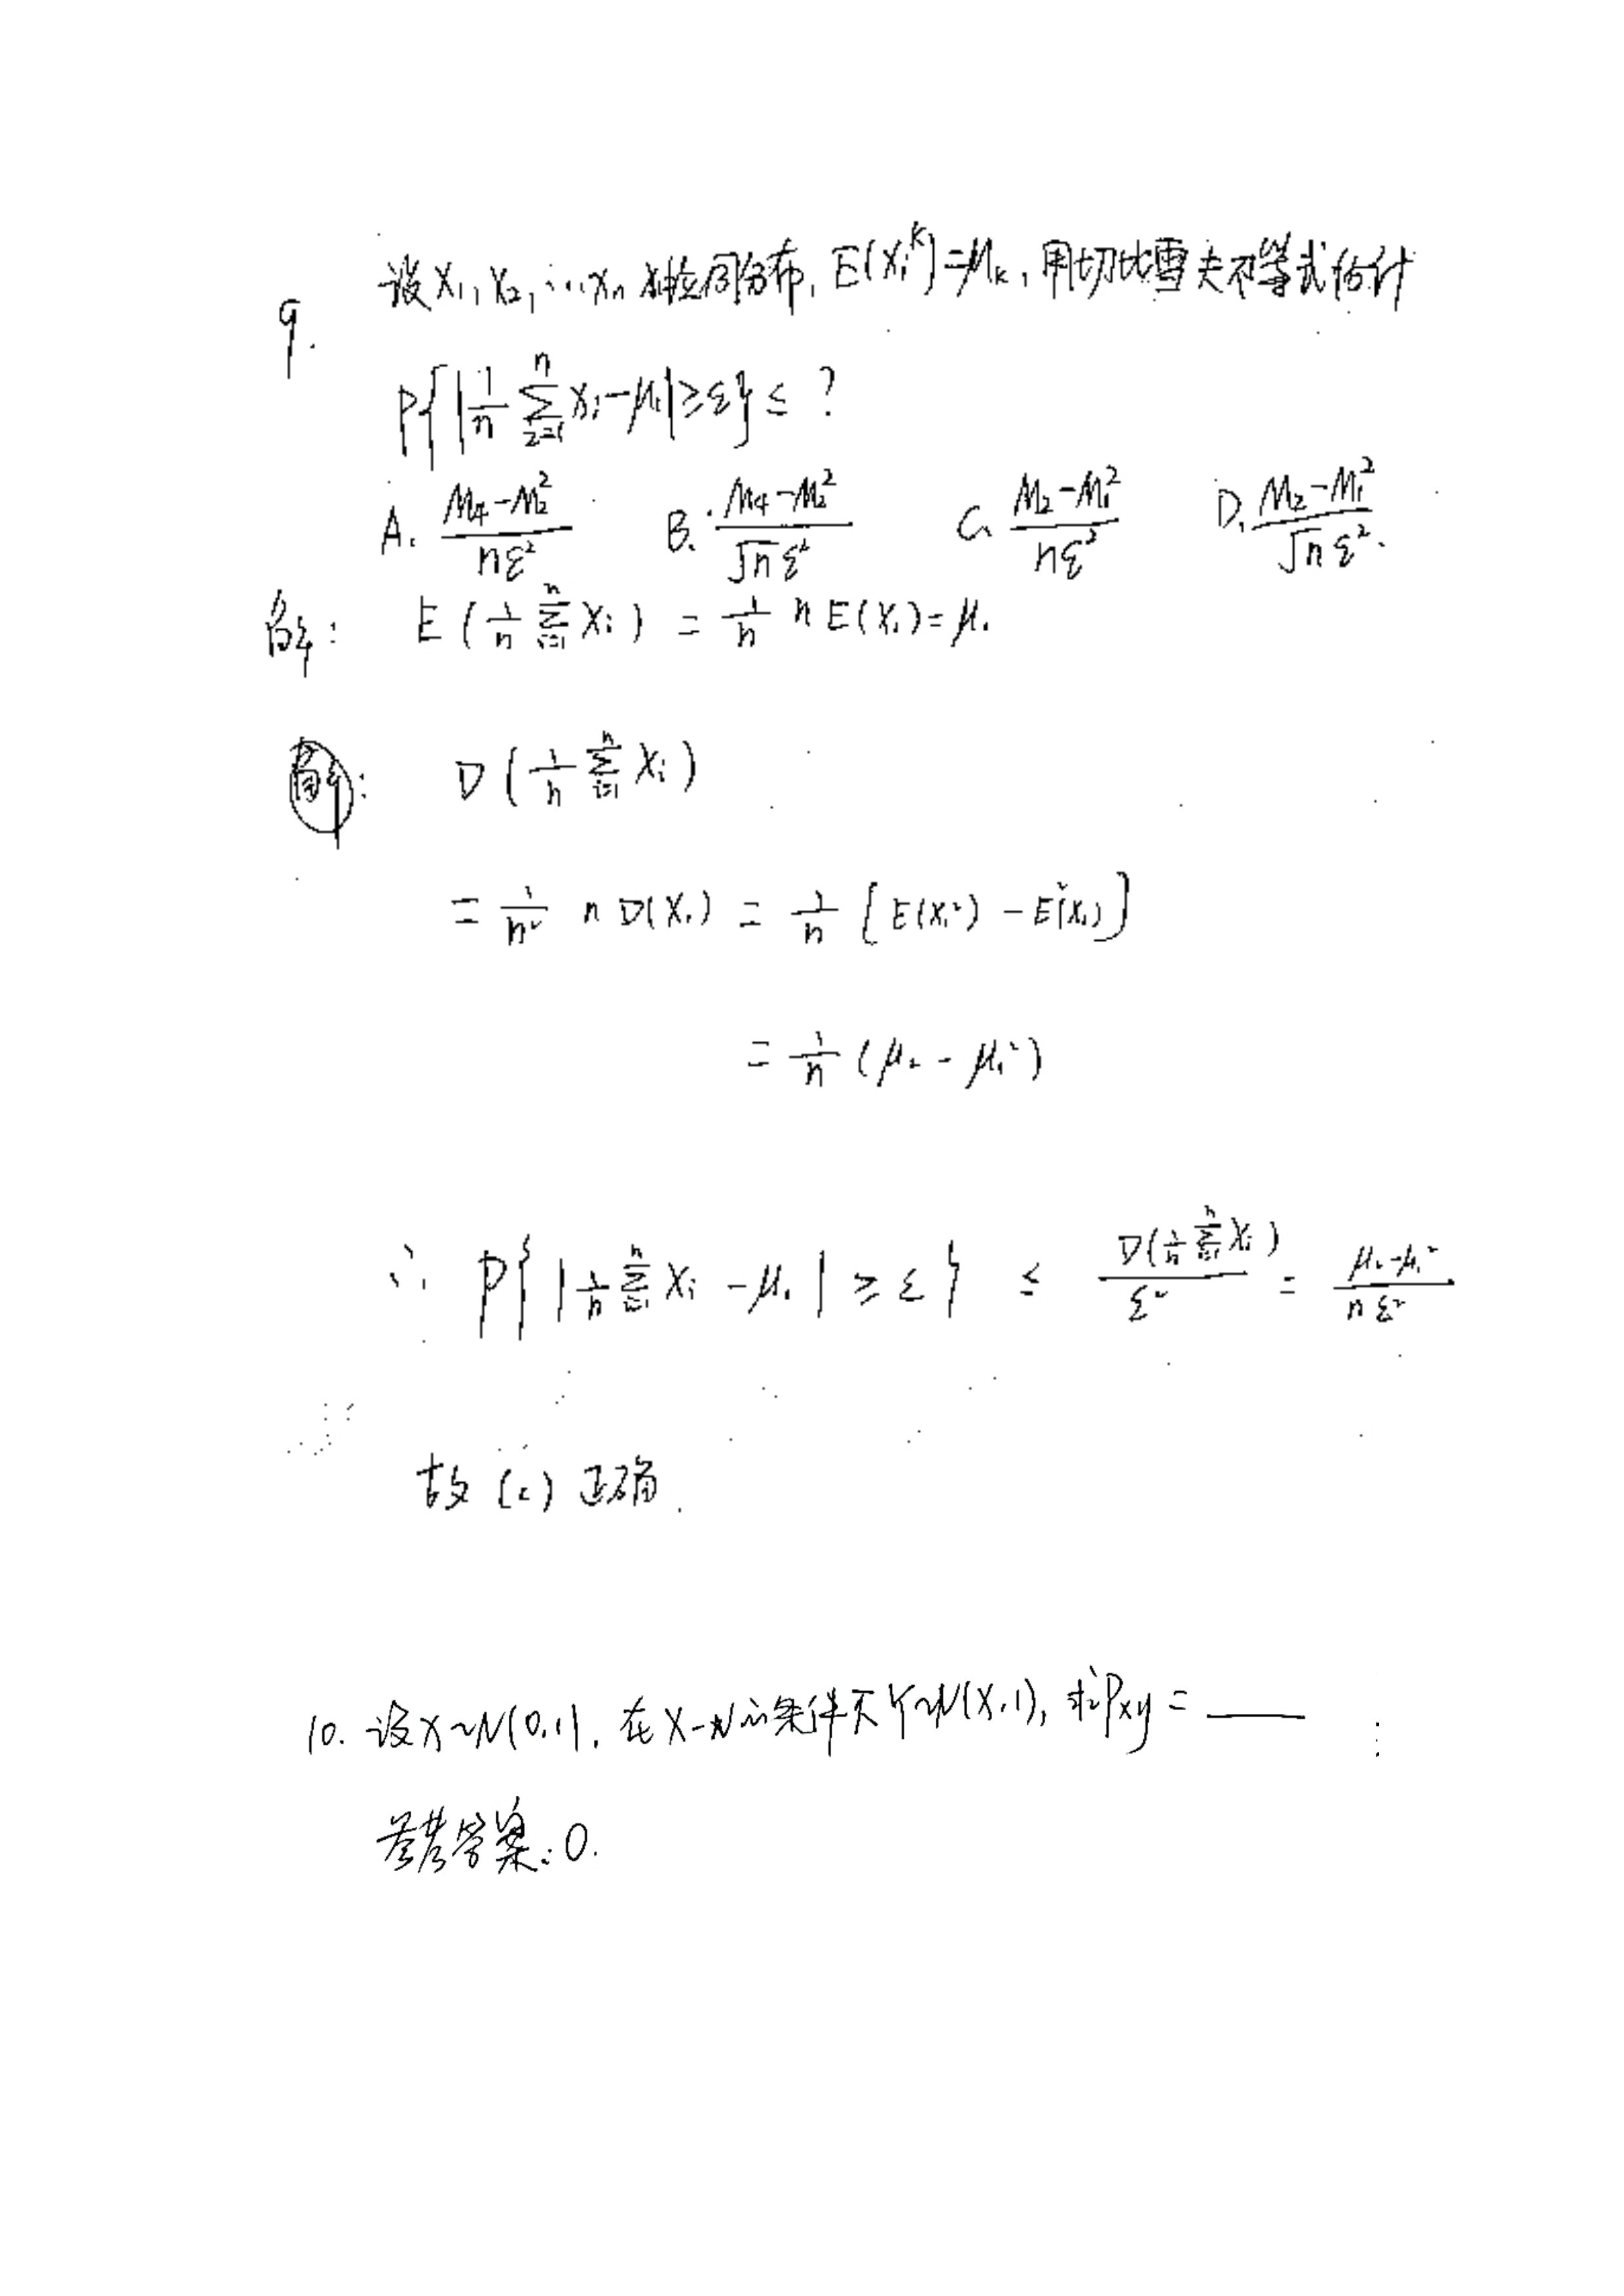 9. 设X₁,X₂,…Xₙ独立同分布,E(Xᵢᵏ)=μₖ,用切比雪夫不等式估计
P{|1/n ∑ᵢ₌₁ⁿ Xᵢ-μ₁|≥ε}≤ ?
A. (μ₄-μ₂²)/(nε²) B. (μ₄-μ₂²)/(√n ε²) C. (μ₂-μ₁²)/(nε²) D. (μ₂-μ₁²)/(√n ε²).
解: E(1/n ∑ᵢ₌₁ⁿ Xᵢ) = 1/n n E(X₁)=μ₁
解: D(1/n ∑ᵢ₌₁ⁿ Xᵢ)
= 1/n² n D(X₁) = 1/n [E(X₁²) - E²(X₁)]
= 1/n (μ₂ - μ₁²)
∴ P{|1/n ∑ᵢ₌₁ⁿ Xᵢ - μ₁| ≥ ε} ≤ D(1/n ∑ᵢ₌₁ⁿ Xᵢ)/ε² = (μ₂-μ₁²)/(nε²)
故(c)正确.
10. 设X~N(0,1),在X=x的条件下Y~N(X,1),求ρxy=____
参考答案:0.